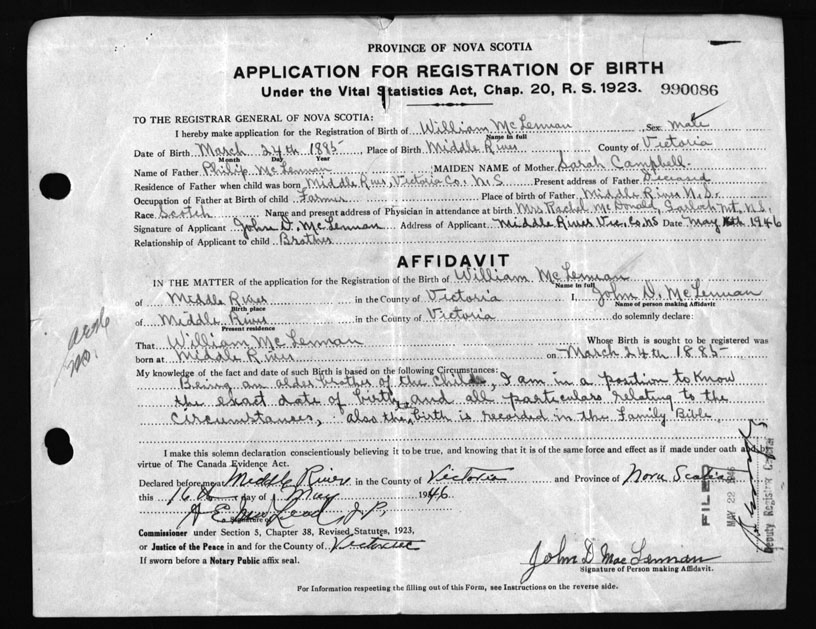 PROVINCE OF NOVA SCOTIA
APPLICATION FOR REGISTRATION OF BIRTH
Under the Vital Statistics Act, Chap. 20, R. S. 1923. 990086
TO THE REGISTRAR GENERAL OF NOVA SCOTIA:
I hereby make application for the Registration of Birth of William McLennan Sex Male
Name in full
Date of Birth March 24th 1885 Place of Birth Middle River County of Victoria
Month Day Year
Name of Father Philip McLennan MAIDEN NAME of Mother Sarah Campbell
Residence of Father when child was born Middle River, Victoria Co. N.S. Present address of Father Deceased
Occupation of Father at Birth of child Farmer Place of birth of Father Middle River N.S.
Race Scotch Name and present address of Physician in attendance at birth Mrs Rachel McDonald, Mt. N.S.
Signature of Applicant John D. McLennan Address of Applicant Middle River Vic. Co NS Date May 16th 1946
Relationship of Applicant to child Brother
AFFIDAVIT
IN THE MATTER of the application for the Registration of the Birth of William McLennan
Name in full
of Middle River in the County of Victoria I, John D. McLennan
Birth place Name of person making Affidavit
of Middle River in the County of Victoria do solemnly declare:
Present residence
That William McLennan Whose Birth is sought to be registered was
born at Middle River on March 24th 1885
My knowledge of the fact and date of such Birth is based on the following Circumstances:
Being an older brother of the child, I am in a position to know
the exact date of birth, and all particulars relating to the
circumstances, also the birth is recorded in the Family Bible.
I make this solemn declaration conscientiously believing it to be true, and knowing that it is of the same force and effect as if made under oath and
virtue of The Canada Evidence Act.
Declared before me at Middle River in the County of Victoria and Province of Nova Scotia
this 16th day of May 1946
J.P.
Signature of
Commissioner under Section 5, Chapter 38, Revised Statutes, 1923,
or Justice of the Peace in and for the County of Victoria
If sworn before a Notary Public affix seal.
John D. MacLennan
Signature of Person making Affidavit.
For information respecting the filling out of this Form, see Instructions on the reverse side.
FILED
MAY 22 1946
Deputy Registrar General